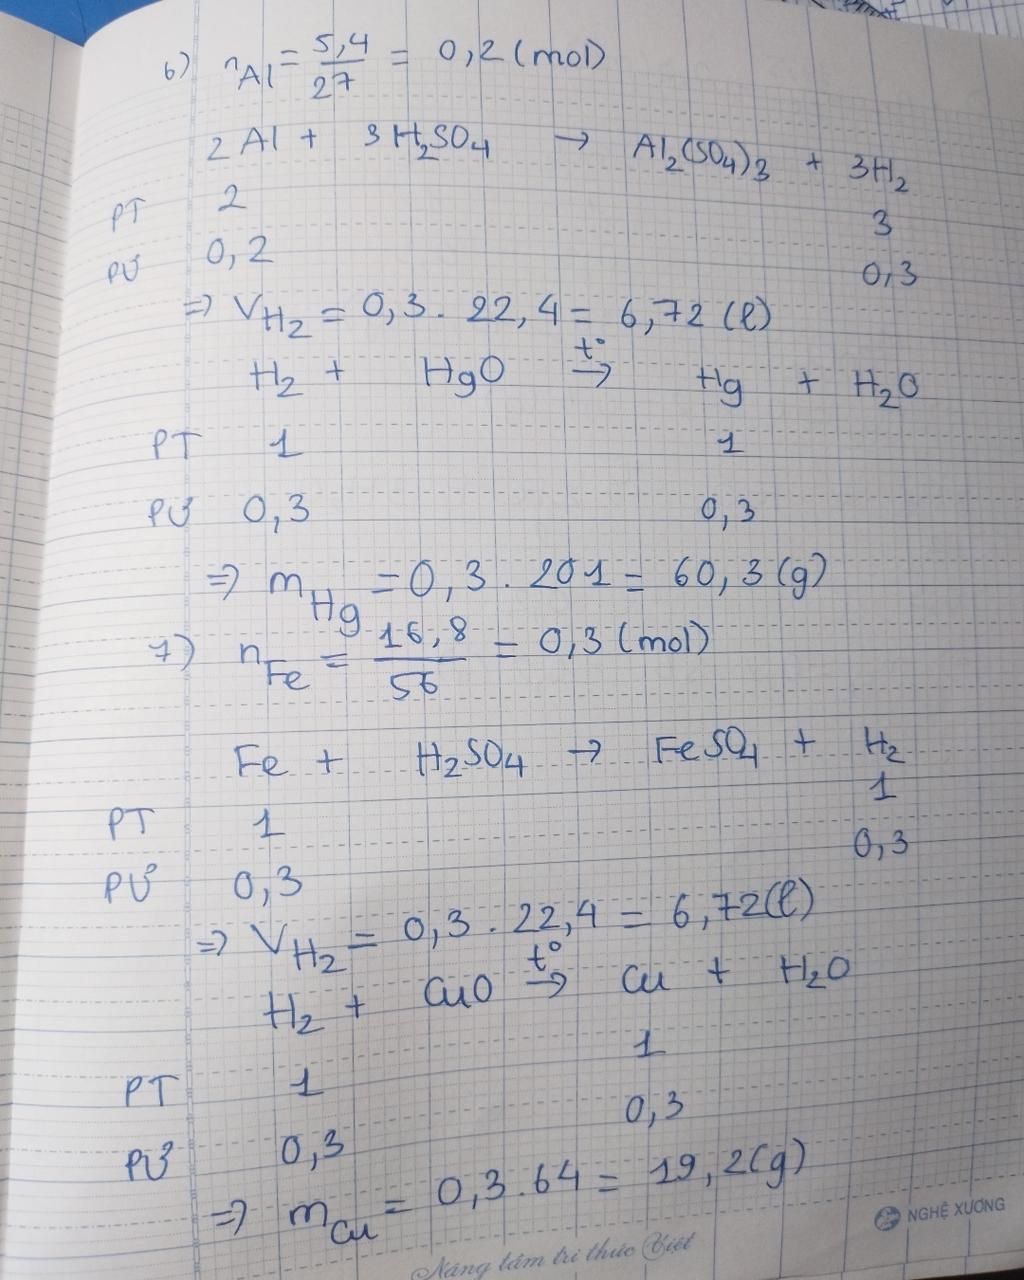 6) nAl = 5,4/27 = 0,2 (mol)
2Al + 3H₂SO₄ → Al₂(SO₄)₃ + 3H₂
PT 2 3
PƯ 0,2 0,3
⇒ V H₂ = 0,3 . 22,4 = 6,72 (l)
H₂ + HgO t° → Hg + H₂O
PT 1 1
PƯ 0,3 0,3
⇒ m Hg = 0,3 . 201 = 60,3 (g)
7) n Fe = 16,8/56 = 0,3 (mol)
Fe + H₂SO₄ → FeSO₄ + H₂
PT 1 1
PƯ 0,3 0,3
⇒ V H₂ = 0,3 . 22,4 = 6,72 (l)
H₂ + CuO t° → Cu + H₂O
PT 1 1
PƯ 0,3 0,3
⇒ m Cu = 0,3 . 64 = 19,2 (g)
NGHỆ XƯƠNG
Nâng tầm tri thức Việt